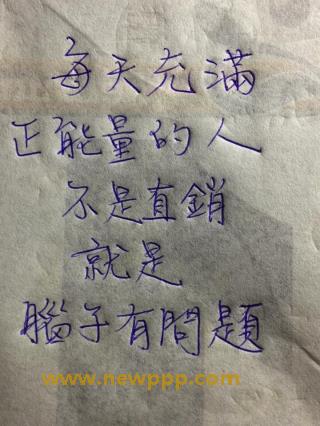 每天充滿
正能量的人
不是直銷
就是
腦子有問題
www.newppp.com